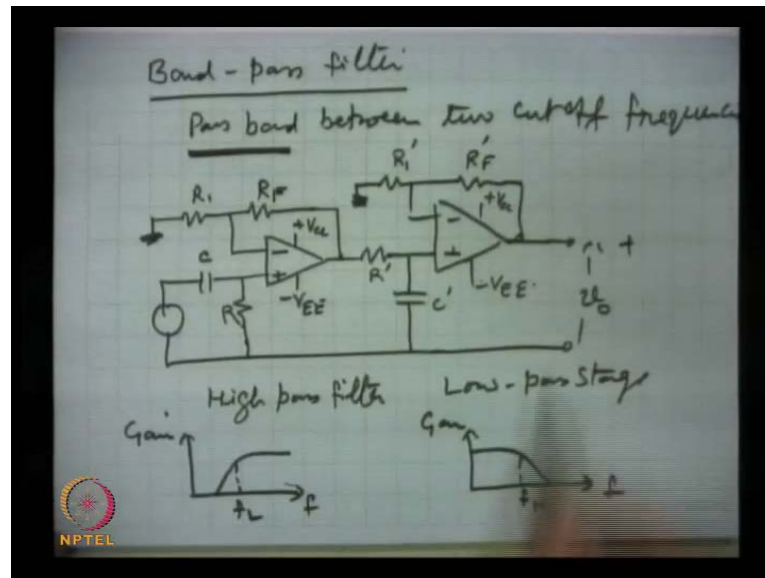 Band-pass filter
Pass band between two cutoff frequenc
R₁ R_F R₁' R_F'
+Vcc +Vcc
C - + - +
R R' C'
-VEE -VEE
+
v₀
High pass filter Low-pass Stage
Gain Gain
f_L f f_H f
NPTEL